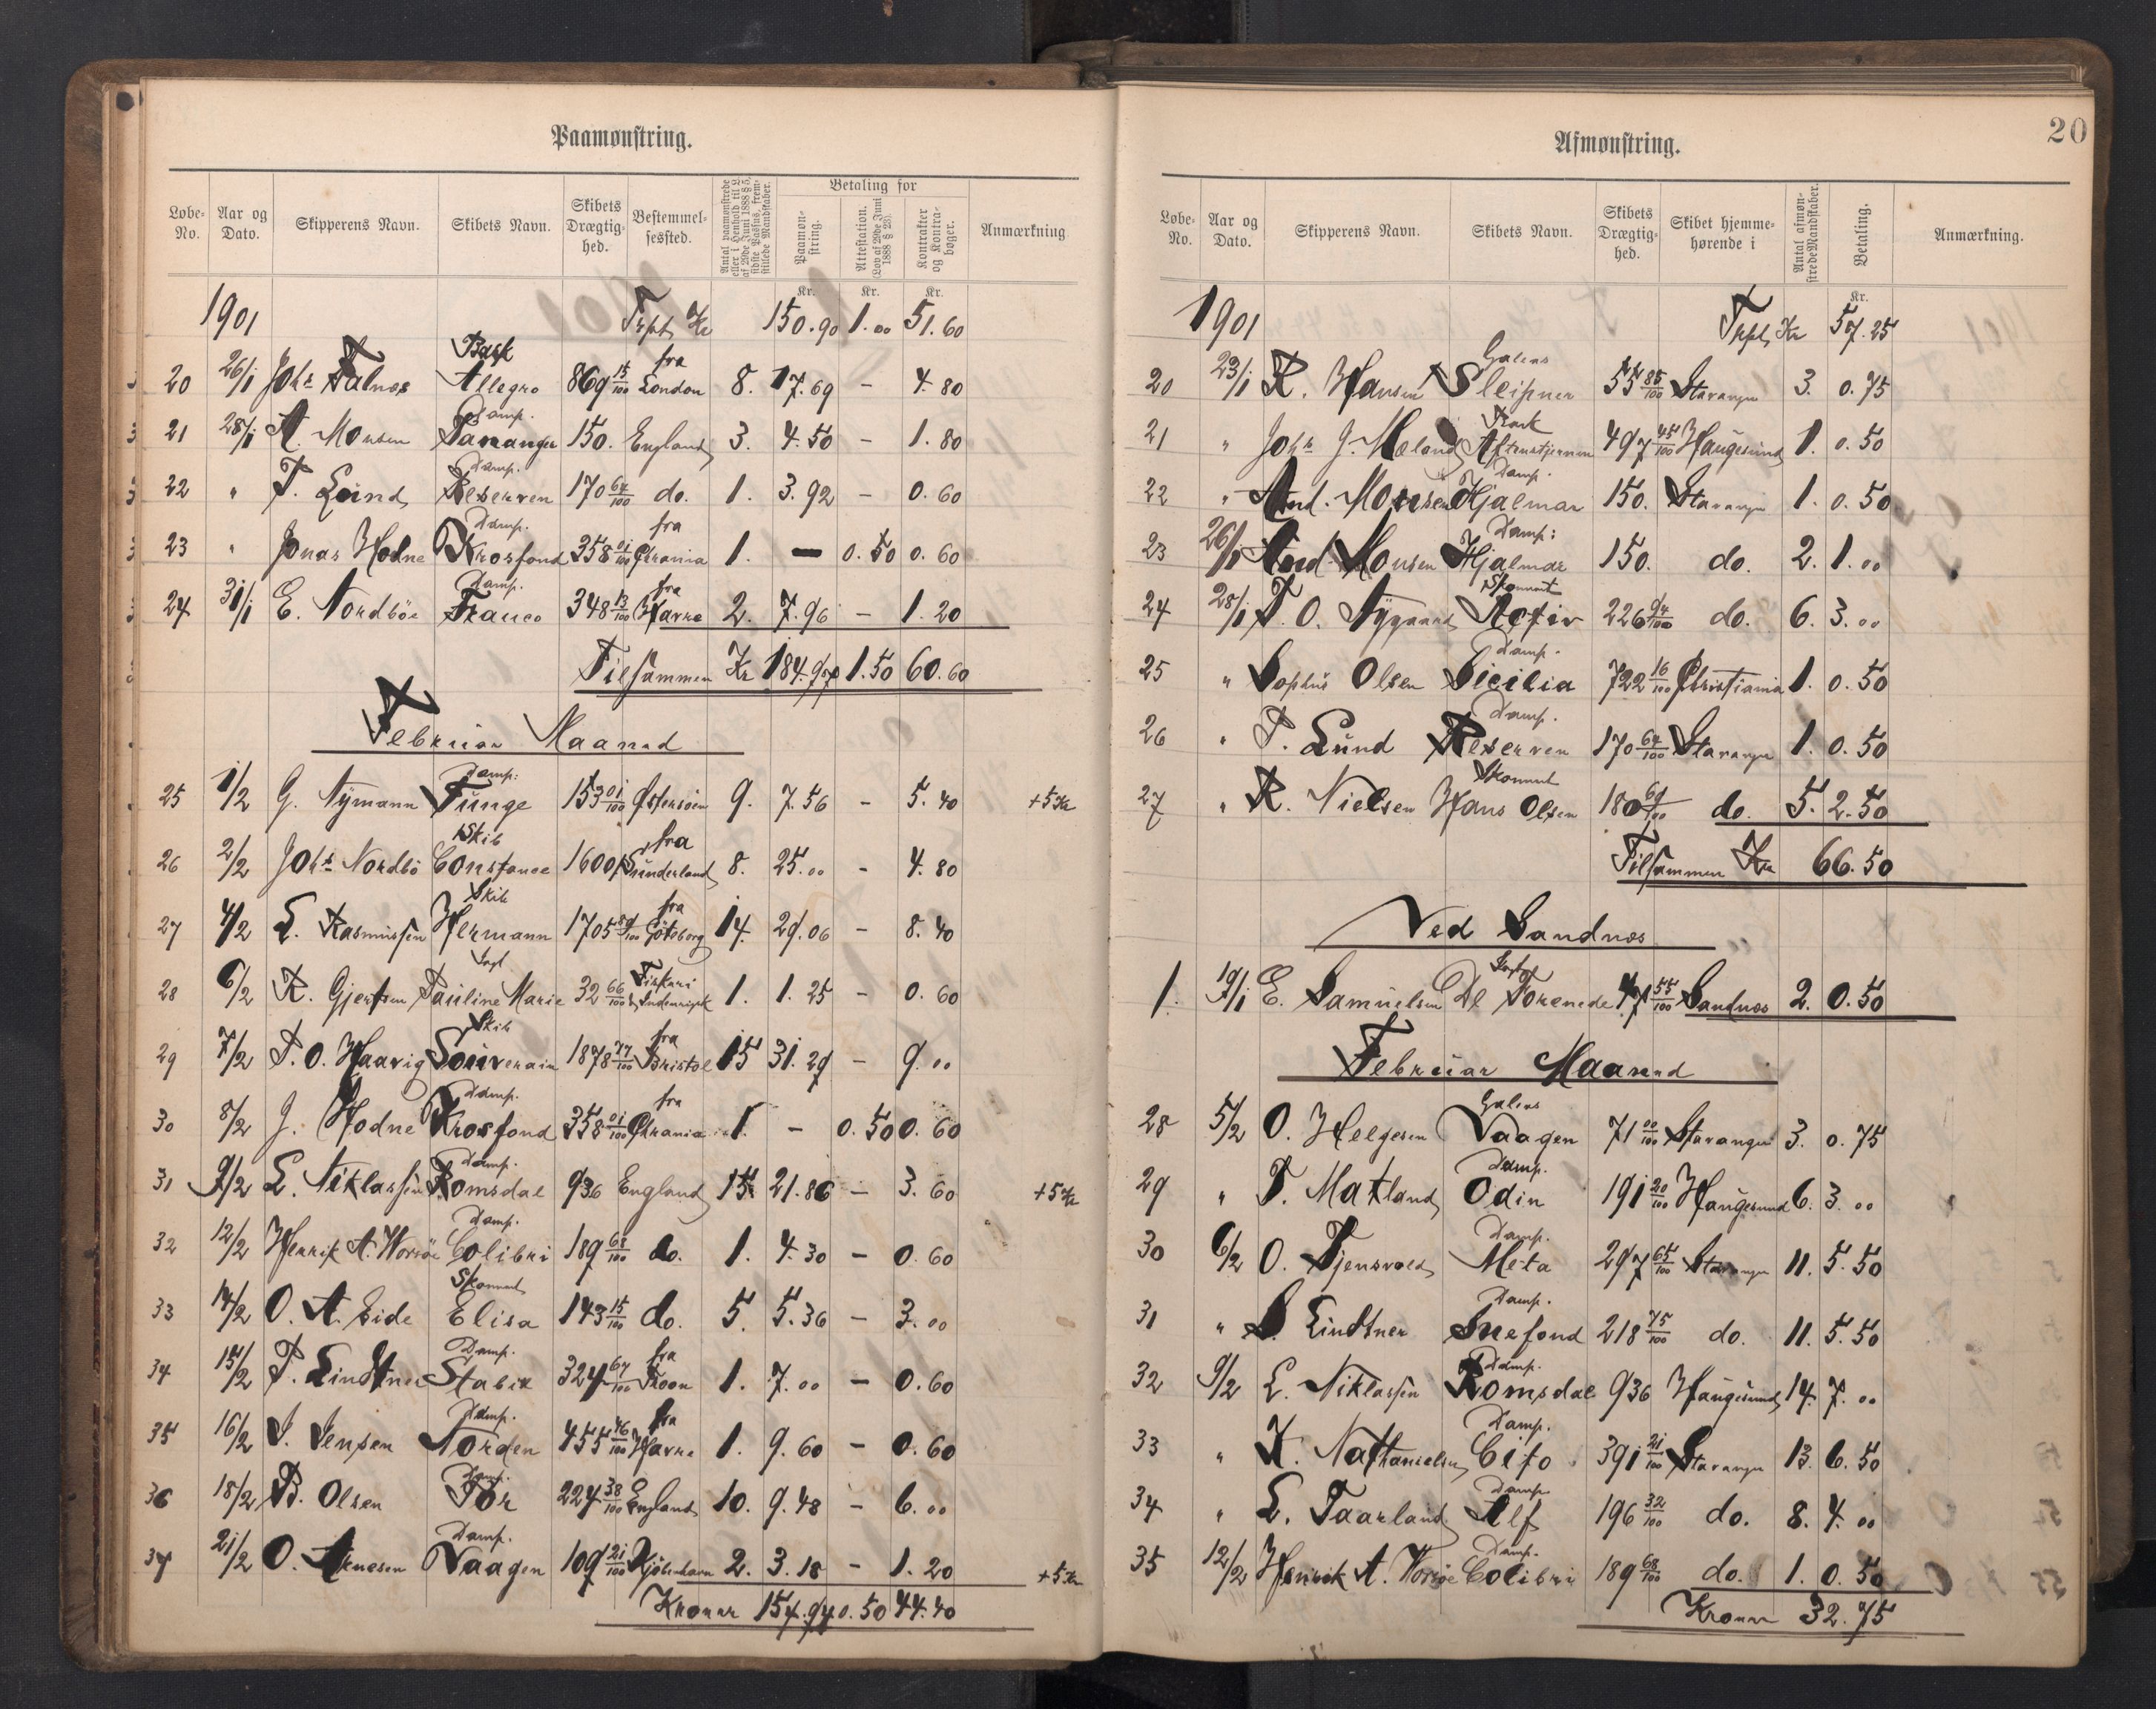 Paamønstring.
Løbe-No. Aar og Dato. Skipperens Navn. Skibets Navn. Skibets Drægtighed. Bestemmelsessted. Antal paamønstrede eller i Henhold til L. af 29de Juni 1888 § 5, sidste Passus, fremstillede Mandskaber. Betaling for Paamønstring. Attestation. (Lov af 29de Juni 1888 § 23). Kontrakter og Kontrabøger. Anmærkning
Kr. Kr. Kr.
1901 Trspt. Kr 150.90 1.00 51.60
20 26/1 Johs Falnes Bark Allegro 869 15/100 fra London 8. 17.69 – 4.80
21 28/1 A. Monsen Damp. Pananger 150. England 3. 4.50 – 1.80
22 " T. Lund Damp. Reserven 170 64/100 do. 1. 3.92 – 0.60
23 " Jonas Hodne Damp. Krosfond 358 01/100 fra Chrania 1. – 0.50 0.60
24 31/1 E. Nordböe Damp. Franco 348 13/100 fra Havre 2. 7.96 – 1.20
Tilsammen Kr 184.97 1.50 60.60
Februar Maaned
25 1/2 G. Nymann Damp: Funge 153 01/100 Østersöen 9. 7.56 – 5.40 +5Kr
26 2/2 Johs Nordbö Skib Constance 1600 fra Sunderland 8. 25.00 – 4.80
27 4/2 L. Rasmussen Skib Hermann 1705 89/100 fra Göteborg 14. 29.06 – 8.40
28 6/2 R. Gjertsen Jagt Pauline Marie 32 66/100 Fiskeri Indenrigsk 1. 1.25 – 0.60
29 7/2 T. O. Haavig Skib Souverain 1878 77/100 fra Bristol 15 31.29 – 9.00
30 8/2 J. Hodne Damp. Krosfond 358 01/100 fra Chrania 1. – 0.50 0.60
31 9/2 L. Niklassen Damp. Romsdal 936 England 15. 21.86 – 3.60 +5Kr
32 12/2 Henrik A. Worsöe Damp. Colibri 189 68/100 do. 1. 4.30 – 0.60
33 14/2 O. A. Eide Skonnert Elisa 143 15/100 do. 5. 5.36 – 3.00
34 15/2 P. Lindtner Damp. Stabil 324 67/100 fra Troon 1. 7.00 – 0.60
35 16/2 J. Jensen Damp. Norden 455 46/100 fra Havre 1. 9.60 – 0.60
36 18/2 B. Olsen Damp. Tör 224 38/100 England 10. 9.48 – 6.00
37 21/2 O. Arnesen Damp. Vaagen 109 21/100 Kjöbenhavn 2. 3.18 – 1.20 +5Kr
Kroner 154.94 0.50 44.40
20
Afmønstring.
Løbe-No. Aar og Dato. Skipperens Navn. Skibets Navn. Skibets Drægtighed. Skibet hjemmehørende i Antal afmønstrede Mandskaber. Betaling. Anmærkning.
Kr.
1901 Trspt, Kr 57.25
20 23/1 R. Hansen Galeas Sleipner 55 85/100 Stavanger 3. 0.75
21 " Johs J. Mæland Bark Aftenstjernen 497 45/100 Haugesund 1. 0.50
22 " And. Monsen Damp. Hjalmar 150. Stavanger 1. 0.50
23 26/1 And. Monsen Damp: Hjalmar 150. do. 2. 1.00
24 28/1 T. O. Nygaard Skonnert Activ 226 94/100 do. 6. 3.00
25 " Sophus Olsen Damp. Sicilia 722 16/100 Christiania 1. 0.50
26 " T. Lund Damp. Reserven 170 64/100 Stavanger 1. 0.50
27 " R. Nielsen Skonnert Hans Olsen 180 69/100 do. 5. 2.50
Tilsammen Kr 66.50
Ved Sandnes
1. 19/1 E. Samuelsen Jagt De Forenede 47 55/100 Sandnes 2. 0.50
Februar Maaned
28 5/2 O. Helgesen Galeas Vaagen 71 00/100 Stavanger 3. 0.75
29 " T. Matland Damp. Odin 191 20/100 Haugesund 6. 3.00
30 6/2 O. Tjensvold Damp. Meta 297 65/100 Stavanger 11. 5.50
31 " S. Lindtner Damp. Snefond 218 75/100 do. 11. 5.50
32 9/2 L. Niklassen Damp. Romsdal 936 Haugesund 14. 7.00
33 " K. Nathanielsen Damp. Cito 391 21/100 Stavanger 13. 6.50
34 " L. Taarland Damp. Alf 196 32/100 do. 8. 4.00
35 12/2 Henrik A. Worsöe Damp. Colibri 189 68/100 do. 1. 0.50
Kroner 32.75